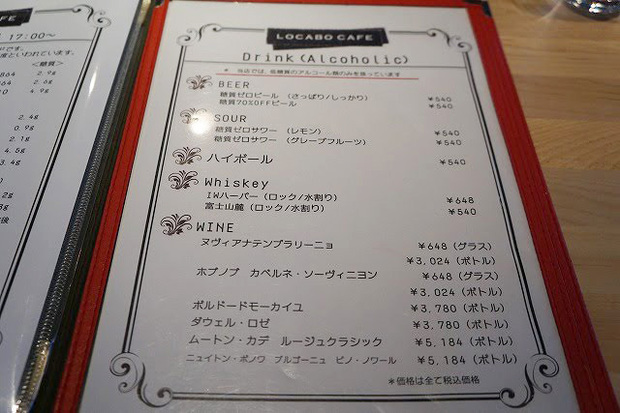 AFE
17:00〜
度といわれています。
<糖質>
864 2.9g
864 2.6g
2.4g
0.9g
2.1g
4.5g
3.4g
LOCABO CAFE
Drink(Alcoholic)
* 当店では、低糖質のアルコール類のみを扱っています
BEER
糖質ゼロビール (さっぱり/しっかり) ¥540
糖質70%OFFビール ¥540
SOUR
糖質ゼロサワー (レモン) ¥540
糖質ゼロサワー (グレープフルーツ) ¥540
ハイボール ¥540
Whiskey
IWハーパー (ロック/水割り) ¥648
富士山麓 (ロック/水割り) ¥540
WINE
ヌヴィアナテンプラリーニョ ¥648 (グラス)
¥3,024 (ボトル)
ホブノブ カベルネ・ソーヴィニヨン ¥648 (グラス)
¥3,024 (ボトル)
ボルドードモーカイユ ¥3,780 (ボトル)
ダウェル・ロゼ ¥3,780 (ボトル)
ムートン・カデ ルージュクラシック ¥5,184 (ボトル)
ニュイトン・ボノワ ブルゴーニュ ピノ・ノワール ¥5,184 (ボトル)
*価格は全て税込価格